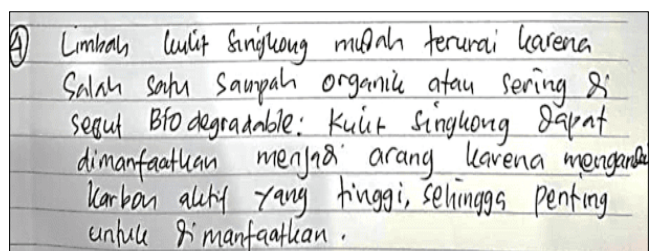 ④ Limbah kulit Singkong mudah terurai karena
Salah satu Sampah organik atau sering di
sebut Biodegradable: Kulit Singkong dapat
dimanfaatkan menjadi arang karena mengandu
karbon aktif yang tinggi, sehingga penting
untuk di manfaatkan.